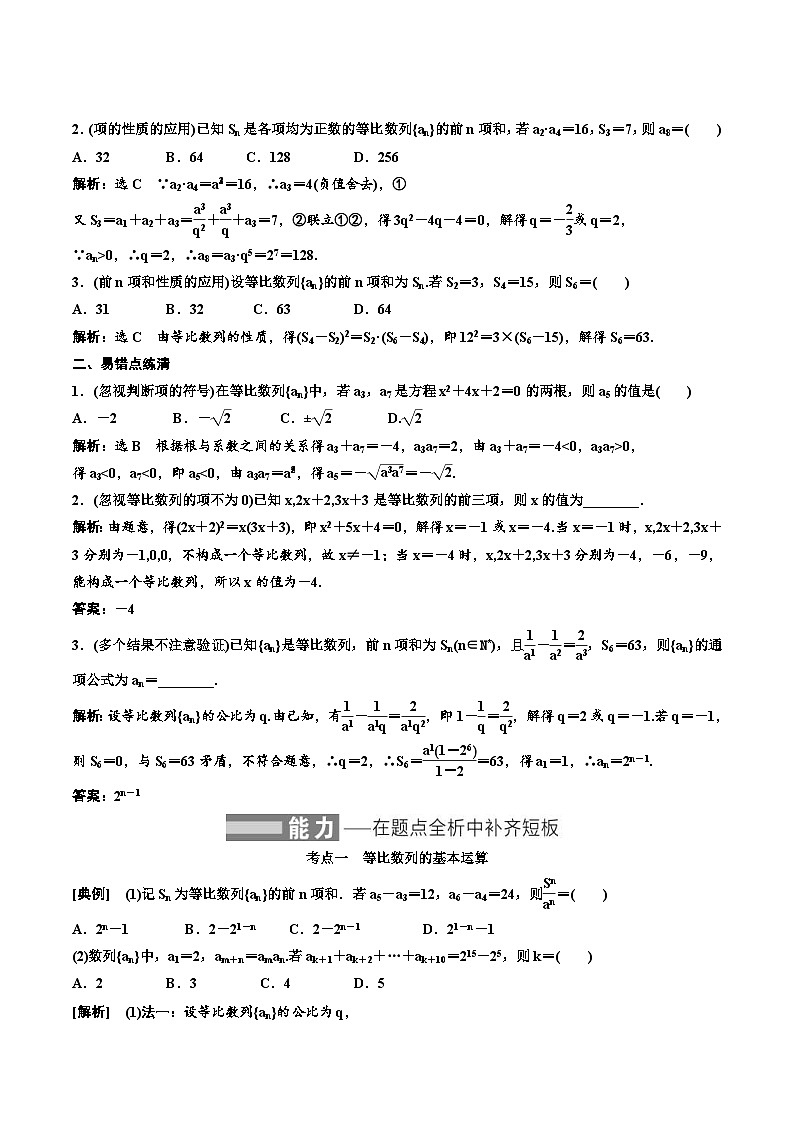 2．(项的性质的应用)已知Sₙ是各项均为正数的等比数列{aₙ}的前n项和，若a₂·a₄＝16，S₃＝7，则a₈＝(　　)
A．32　　B．64　　C．128　　D．256
解析：选C　∵a₂·a₄＝a₃²＝16，∴a₃＝4(负值舍去)，①
又S₃＝a₁＋a₂＋a₃＝a3/q²＋a3/q＋a₃＝7，②联立①②，得3q²－4q－4＝0，解得q＝－2/3或q＝2，
∵aₙ>0，∴q＝2，∴a₈＝a₃·q⁵＝2⁷＝128.
3．(前n项和性质的应用)设等比数列{aₙ}的前n项和为Sₙ.若S₂＝3，S₄＝15，则S₆＝(　　)
A．31　　B．32　　C．63　　D．64
解析：选C　由等比数列的性质，得(S₄－S₂)²＝S₂·(S₆－S₄)，即12²＝3×(S₆－15)，解得S₆＝63.
二、易错点练清
1．(忽视判断项的符号)在等比数列{aₙ}中，若a₃，a₇是方程x²＋4x＋2＝0的两根，则a₅的值是(　　)
A．－2　　B．－√2　　C．±√2　　D.√2
解析：选B　根据根与系数之间的关系得a₃＋a₇＝－4，a₃a₇＝2，由a₃＋a₇＝－4<0，a₃a₇>0，
得a₃<0，a₇<0，即a₅<0，由a₃a₇＝a₅²，得a₅＝－√(a3a7)＝－√2.
2．(忽视等比数列的项不为0)已知x,2x＋2,3x＋3是等比数列的前三项，则x的值为________．
解析：由题意，得(2x＋2)²＝x(3x＋3)，即x²＋5x＋4＝0，解得x＝－1或x＝－4.当x＝－1时，x,2x＋2,3x＋
3分别为－1,0,0，不构成一个等比数列，故x≠－1；当x＝－4时，x,2x＋2,3x＋3分别为－4，－6，－9，
能构成一个等比数列，所以x的值为－4.
答案：－4
3．(多个结果不注意验证)已知{aₙ}是等比数列，前n项和为Sₙ(n∈N*)，且1/a1－1/a2＝2/a3，S₆＝63，则{aₙ}的通
项公式为aₙ＝________.
解析：设等比数列{aₙ}的公比为q.由已知，有1/a1－1/a1q＝2/a1q²，即1－1/q＝2/q²，解得q＝2或q＝－1.若q＝－1，
则S₆＝0，与S₆＝63矛盾，不符合题意，∴q＝2，∴S₆＝a1(1－2⁶)/(1－2)＝63，得a₁＝1，∴aₙ＝2ⁿ⁻¹.
答案：2ⁿ⁻¹
能力——在题点全析中补齐短板
考点一　等比数列的基本运算
[典例]　(1)记Sₙ为等比数列{aₙ}的前n项和．若a₅－a₃＝12，a₆－a₄＝24，则Sn/an＝(　　)
A．2ⁿ－1　　B．2－2¹⁻ⁿ　　C．2－2ⁿ⁻¹　　D．2¹⁻ⁿ－1
(2)数列{aₙ}中，a₁＝2，aₘ₊ₙ＝aₘaₙ.若aₖ₊₁＋aₖ₊₂＋…＋aₖ₊₁₀＝2¹⁵－2⁵，则k＝(　　)
A．2　　B．3　　C．4　　D．5
[解析]　(1)法一：设等比数列{aₙ}的公比为q，